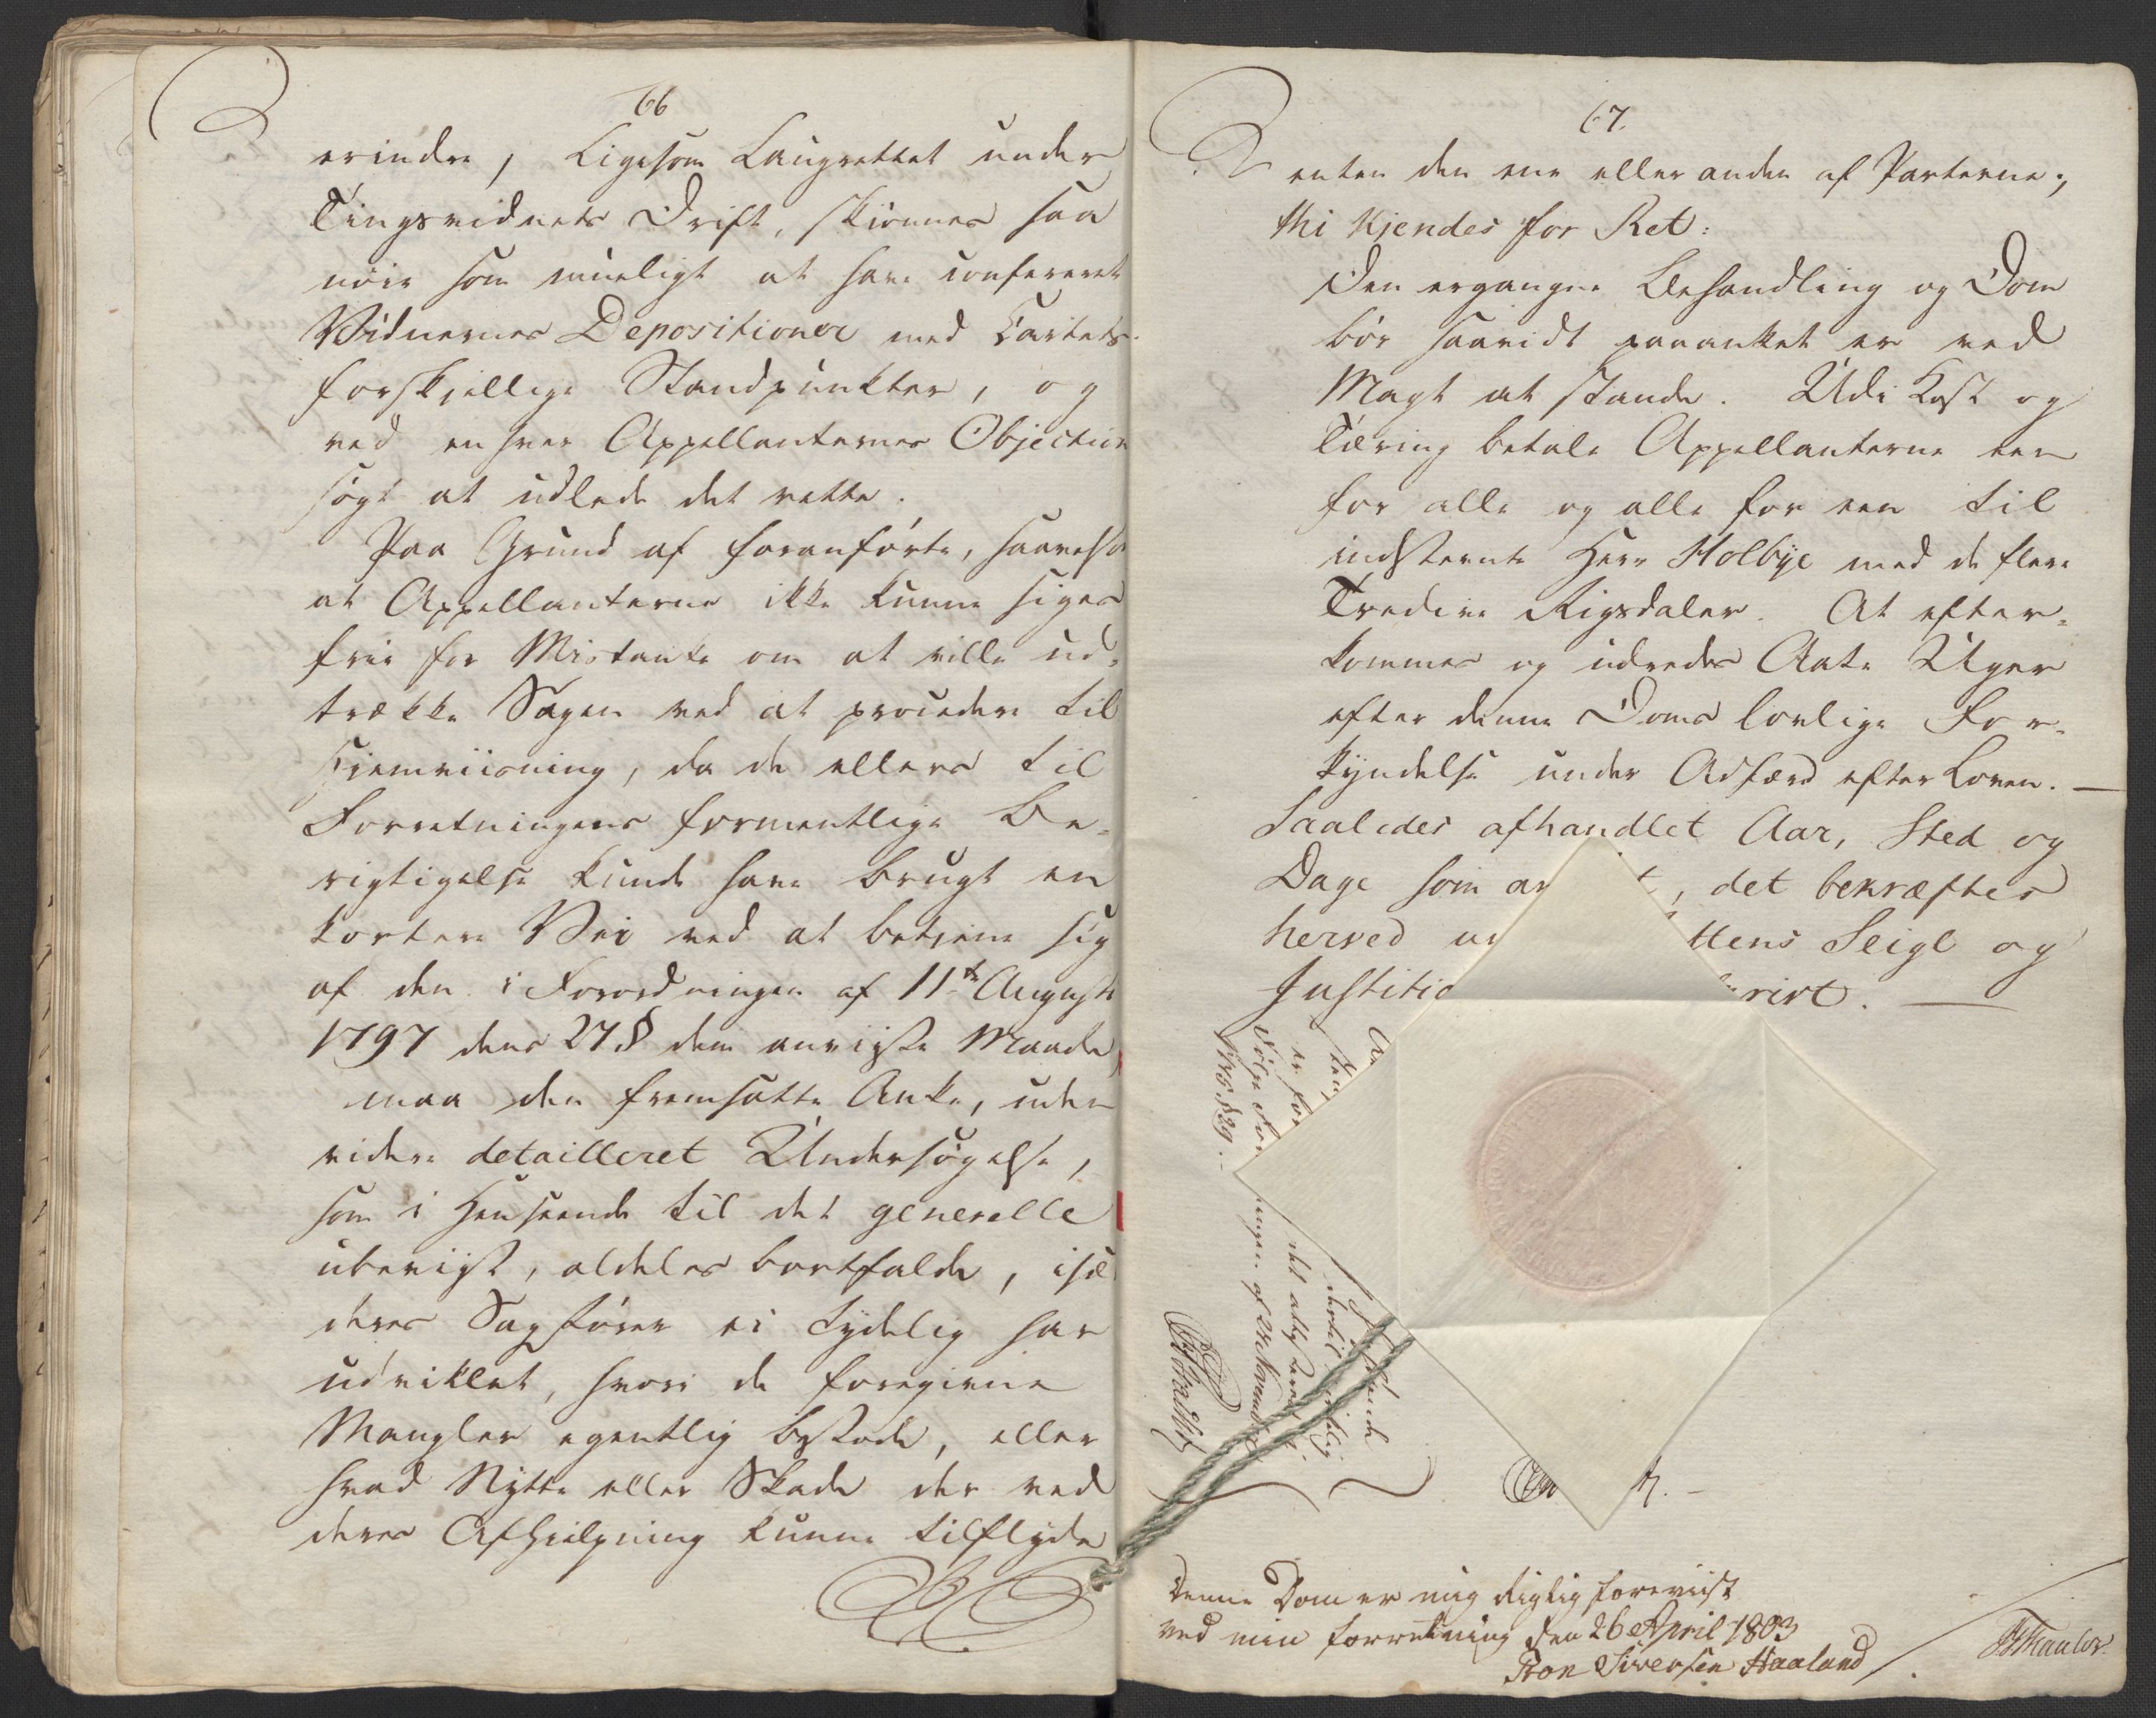 66
erindre, Ligesom Laugrettet under
Tingsvidnets Drift, skiønnes saa
nøie som mueligt at have confereret
Vidnernes Depositioner med Cartets
forskjellige Standpunkter, og
ved en hver Appellanternes Objection
søgt at udlede det rette.
Paa Grund af foranførte, saavelsom
at Appellanterne ikke kunne siges
frie for Mistanke om at ville ud-
trække Sagen ved at procedere til
Hjemviisning, da de ellers til
Forretningens formentlige Be-
rigtigelse kunde have brugt en
kortere Vei ved at betjene sig
af den i Forordningen af 11te August
1797 dens 27 § dem anviiste Maade,
maa den fremsatte Anke, uden
videre detailleret Undersøgelse,
som i Henseende til det generelle
ubeviist, aldeles bortfalde, især
deres Sagfører ei tydelig har
udviklet, hvori de foregivne
Mangler egentlig bestode, eller
hvad Nytte eller Skade der ved
deres Afhielpning kunne tilflyde
67.
enten den ene eller anden af Parterne;
thi Kjendes for Ret:
Den ergangne Behandling og Dom
bør saavidt paaanket er ved
Magt at stande. Udi Kost og
Tæring betale Appellanterne een
for alle og alle for een til
indstevnte Herr Holbye med de flere
Tredive Rigsdaler. At efter-
kommes og udredes Aate Uger
efter denne Doms lovlige For-
kyndelse under Adfærd efter Loven. —
Saaledes afhandlet Aar, Sted og
Dage som an t, det bekræftes
herved un ttens Seigl og
Justitia rivt. —
er for
Følge For ningen af 23de Novemb
1786 § 29.
Denne Dom er mig Rigtig foreviist
ved min forretning den 26 April 1803
Tron Siversen Haaland